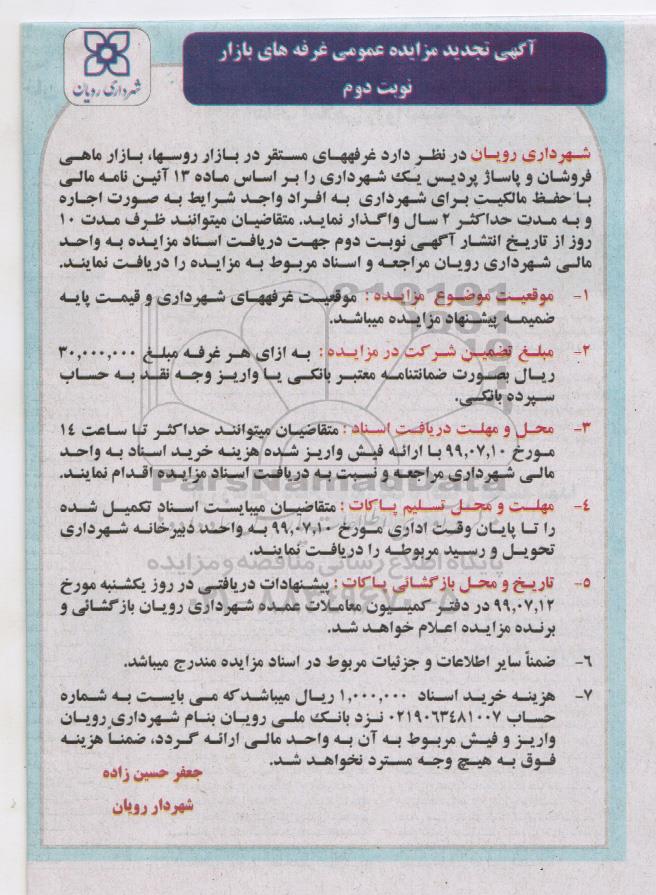 آگهی تجدید مزایده عمومی غرفه های بازار
نوبت دوم
شهرداری رویان
شهرداری رویان در نظر دارد غرفههای مستقر در بازار روسها، بازار ماهی
فروشان و پاساژ پردیس یک شهرداری را بر اساس ماده ۱۳ آئین نامه مالی
با حفظ مالکیت برای شهرداری به افراد واجد شرایط به صورت اجاره
و به مدت حداکثر ۲ سال واگذار نماید. متقاضیان میتوانند ظرف مدت ۱۰
روز از تاریخ انتشار آگهی نوبت دوم جهت دریافت اسناد مزایده به واحد
مالی شهرداری رویان مراجعه و اسناد مربوط به مزایده را دریافت نمایند.
۱- موقعیت موضوع مزایده : موقعیت غرفههای شهرداری و قیمت پایه
ضمیمه پیشنهاد مزایده میباشد.
۲- مبلغ تضمین شرکت در مزایده : به ازای هر غرفه مبلغ ۳۰,۰۰۰,۰۰۰
ریال بصورت ضمانتنامه معتبر بانکی یا واریز وجه نقد به حساب
سپرده بانکی.
۳- محل و مهلت دریافت اسناد : متقاضیان میتوانند حداکثر تا ساعت ۱۴
مورخ ۹۹,۰۷,۱۰ با ارائه فیش واریز شده هزینه خرید اسناد به واحد
مالی شهرداری مراجعه و نسبت به دریافت اسناد مزایده اقدام نمایند.
۴- مهلت و محل تسلیم پاکات : متقاضیان میبایست اسناد تکمیل شده
را تا پایان وقت اداری مورخ ۹۹,۰۷,۱۰ به واحد دبیرخانه شهرداری
تحویل و رسید مربوطه را دریافت نمایند.
پایگاه اطلاع رسانی مناقصه و مزایده
۵- تاریخ و محل بازگشائی پاکات : پیشنهادات دریافتی در روز یکشنبه مورخ
۹۹,۰۷,۱۲ در دفتر کمیسیون معاملات عمده شهرداری رویان بازگشائی و
برنده مزایده اعلام خواهد شد.
۶- ضمناً سایر اطلاعات و جزئیات مربوط در اسناد مزایده مندرج میباشد.
۷- هزینه خرید اسناد ۱,۰۰۰,۰۰۰ ریال میباشد که می بایست به شماره
حساب ۰۲۱۹۰۶۳۴۸۱۰۰۷ نزد بانک ملی رویان بنام شهرداری رویان
واریز و فیش مربوط به آن به واحد مالی ارائه گردد، ضمناً هزینه
فوق به هیچ وجه مسترد نخواهد شد.
جعفر حسین زاده
شهردار رویان